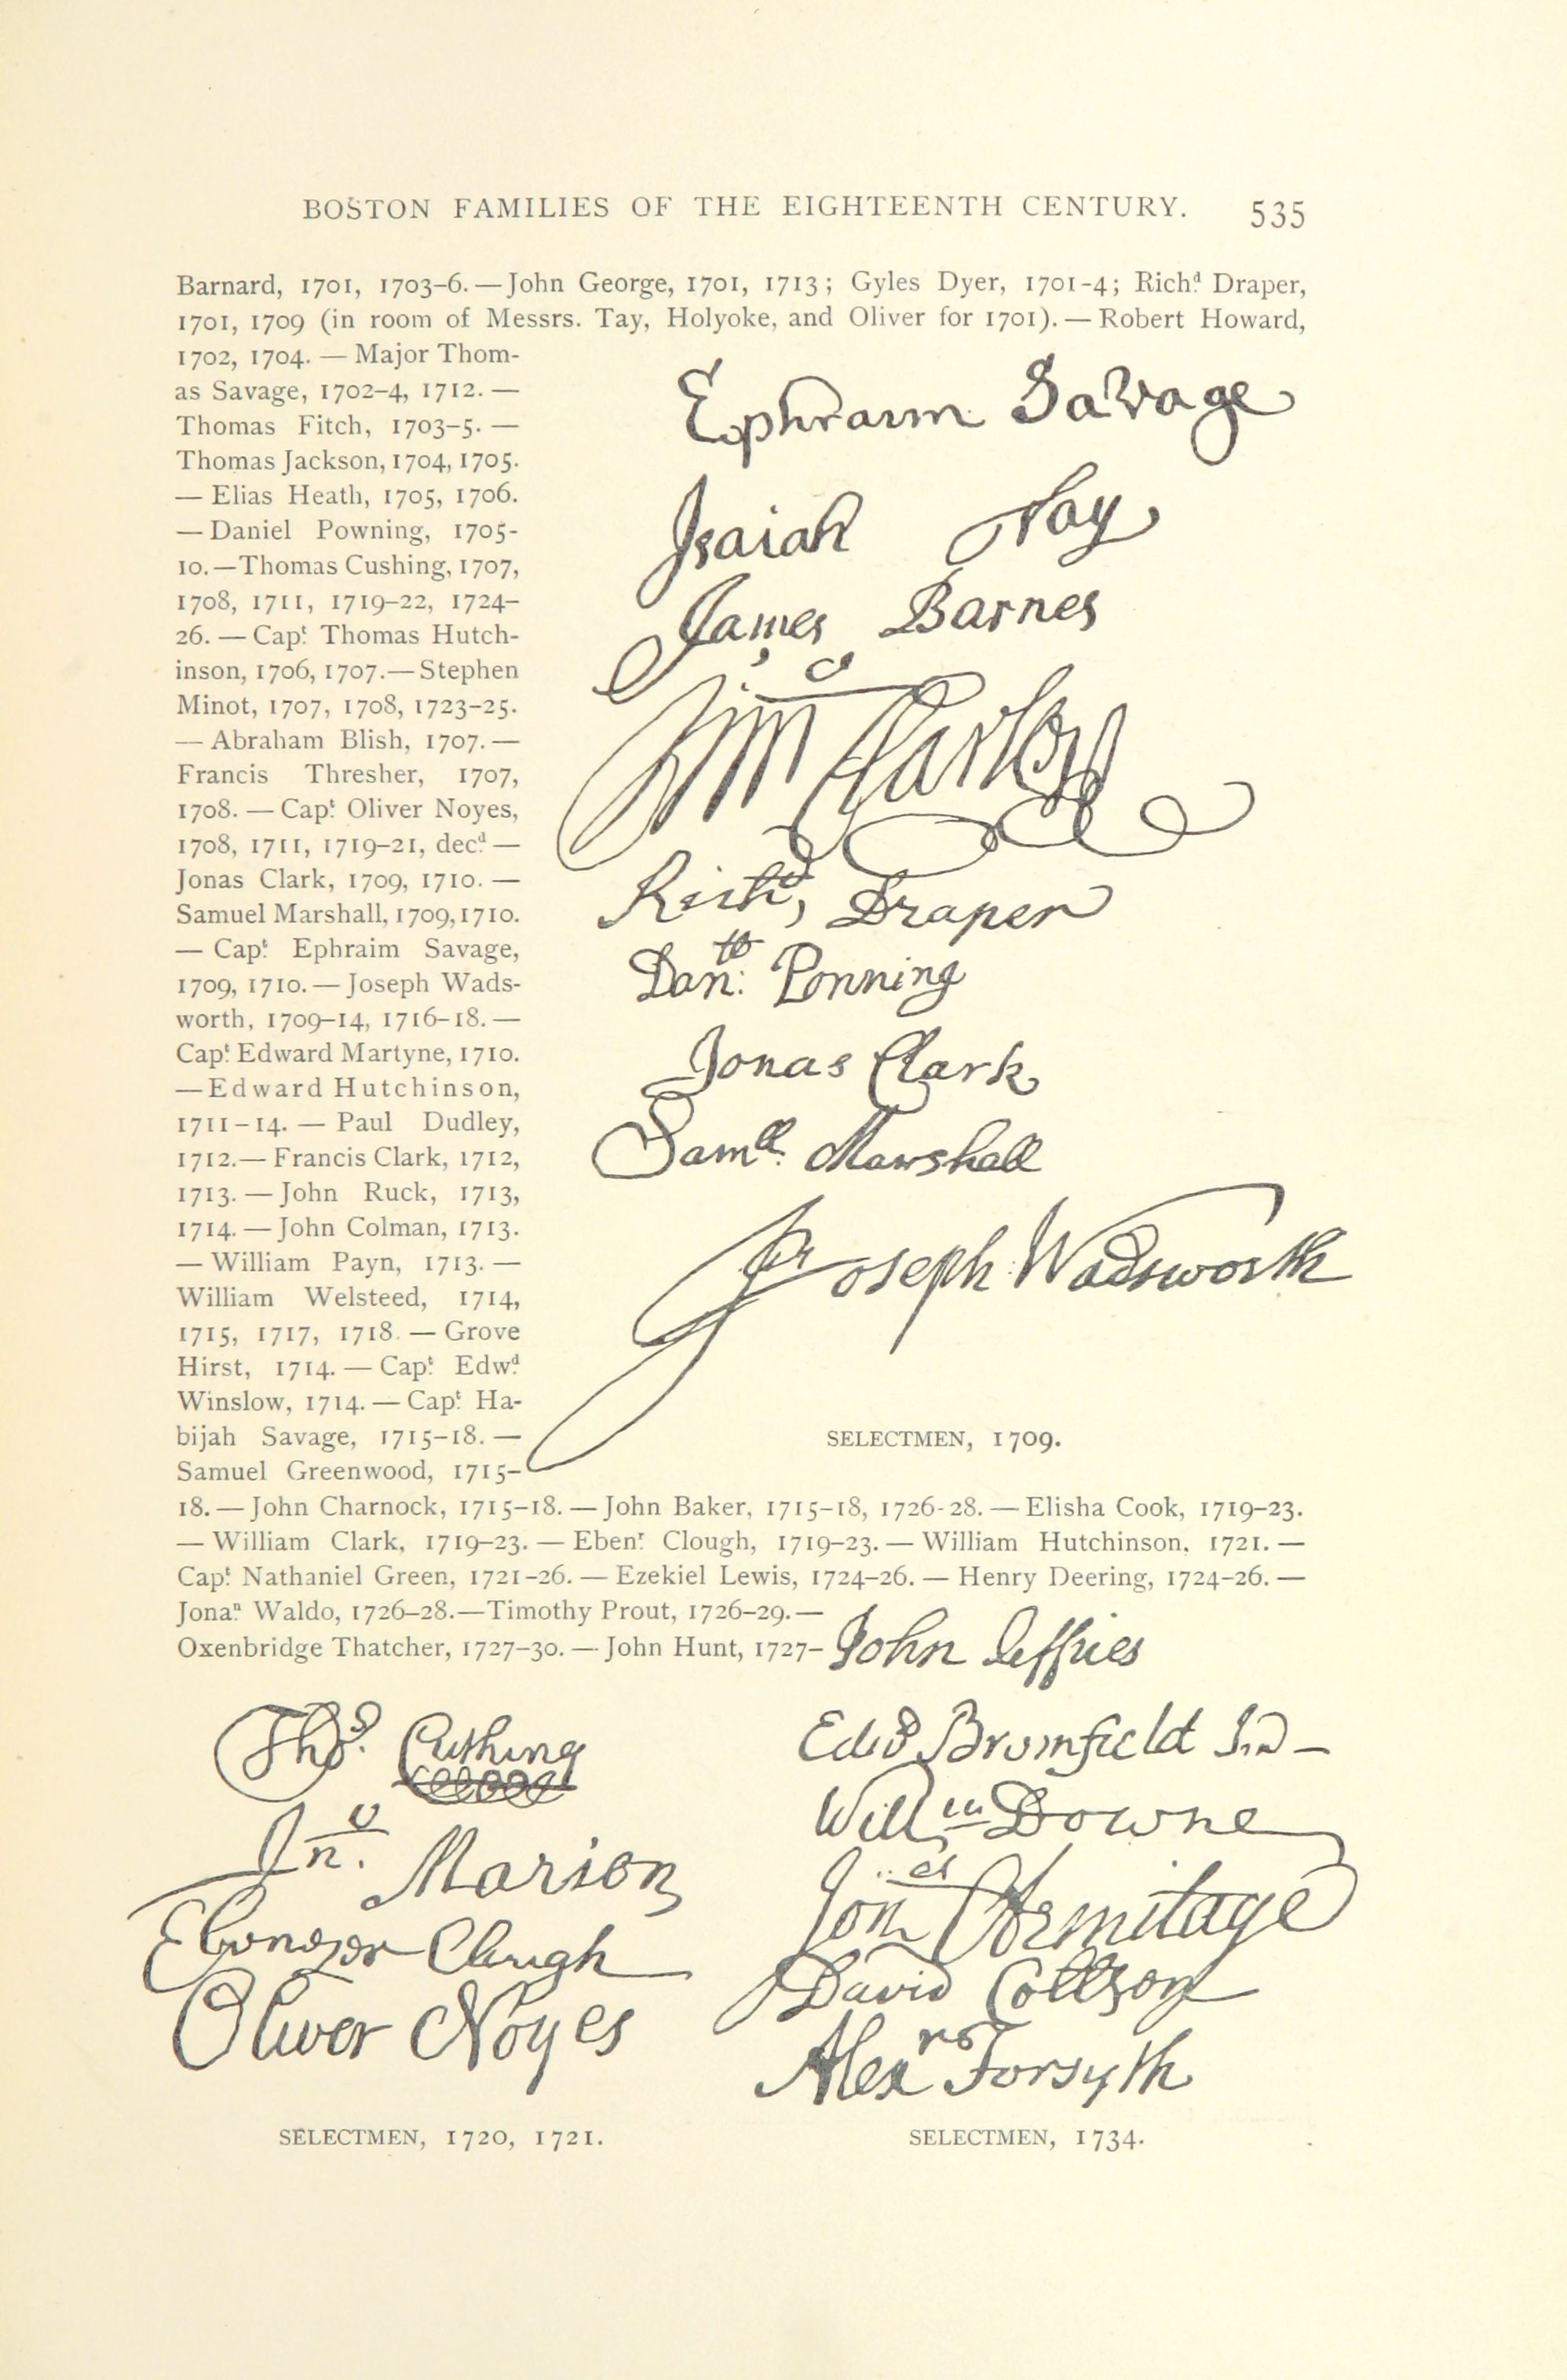 BOSTON FAMILIES OF THE EIGHTEENTH CENTURY. 535
Barnard, 1701, 1703–6. — John George, 1701, 1713; Gyles Dyer, 1701-4; Richᵈ Draper,
1701, 1709 (in room of Messrs. Tay, Holyoke, and Oliver for 1701). — Robert Howard,
1702, 1704. — Major Thom-
as Savage, 1702–4, 1712. —
Thomas Fitch, 1703–5. —
Thomas Jackson, 1704, 1705.
— Elias Heath, 1705, 1706.
— Daniel Powning, 1705-
10. — Thomas Cushing, 1707,
1708, 1711, 1719–22, 1724–
26. — Capᵗ Thomas Hutch-
inson, 1706, 1707. — Stephen
Minot, 1707, 1708, 1723–25.
— Abraham Blish, 1707. —
Francis Thresher, 1707,
1708. — Capᵗ Oliver Noyes,
1708, 1711, 1719–21, decᵈ —
Jonas Clark, 1709, 1710. —
Samuel Marshall, 1709, 1710.
— Capᵗ Ephraim Savage,
1709, 1710. — Joseph Wads-
worth, 1709–14, 1716–18. —
Capᵗ Edward Martyne, 1710.
— Edward Hutchinson,
1711–14. — Paul Dudley,
1712. — Francis Clark, 1712,
1713. — John Ruck, 1713,
1714. — John Colman, 1713.
— William Payn, 1713. —
William Welsteed, 1714,
1715, 1717, 1718. — Grove
Hirst, 1714. — Capᵗ Edwᵈ
Winslow, 1714. — Capᵗ Ha-
bijah Savage, 1715–18. —
Samuel Greenwood, 1715–
Ephraim Savage
Isaiah Tay
James Barnes
Richᵈ, Draper
Danˡˡ: Powning
Jonas Clark
Samˡˡ. Marshall
Joseph Wadsworth
SELECTMEN, 1709.
18. — John Charnock, 1715–18. — John Baker, 1715–18, 1726-28. — Elisha Cook, 1719–23.
— William Clark, 1719–23. — Ebenʳ Clough, 1719–23. — William Hutchinson, 1721. —
Capᵗ Nathaniel Green, 1721-26. — Ezekiel Lewis, 1724–26. — Henry Deering, 1724–26. —
Jonaⁿ Waldo, 1726–28. — Timothy Prout, 1726–29. —
Oxenbridge Thatcher, 1727–30. — John Hunt, 1727–
Thoˢ. Cushing
Jnᵒ. Marion
Ebenezer Clough
Oliver Noyes
SELECTMEN, 1720, 1721.
John Jeffries
Edwᵈ Bromfield Jun
Willᵐ Downe
Jonᵃˢ Armitage
David Collson
Alexʳ Forsyth
SELECTMEN, 1734.